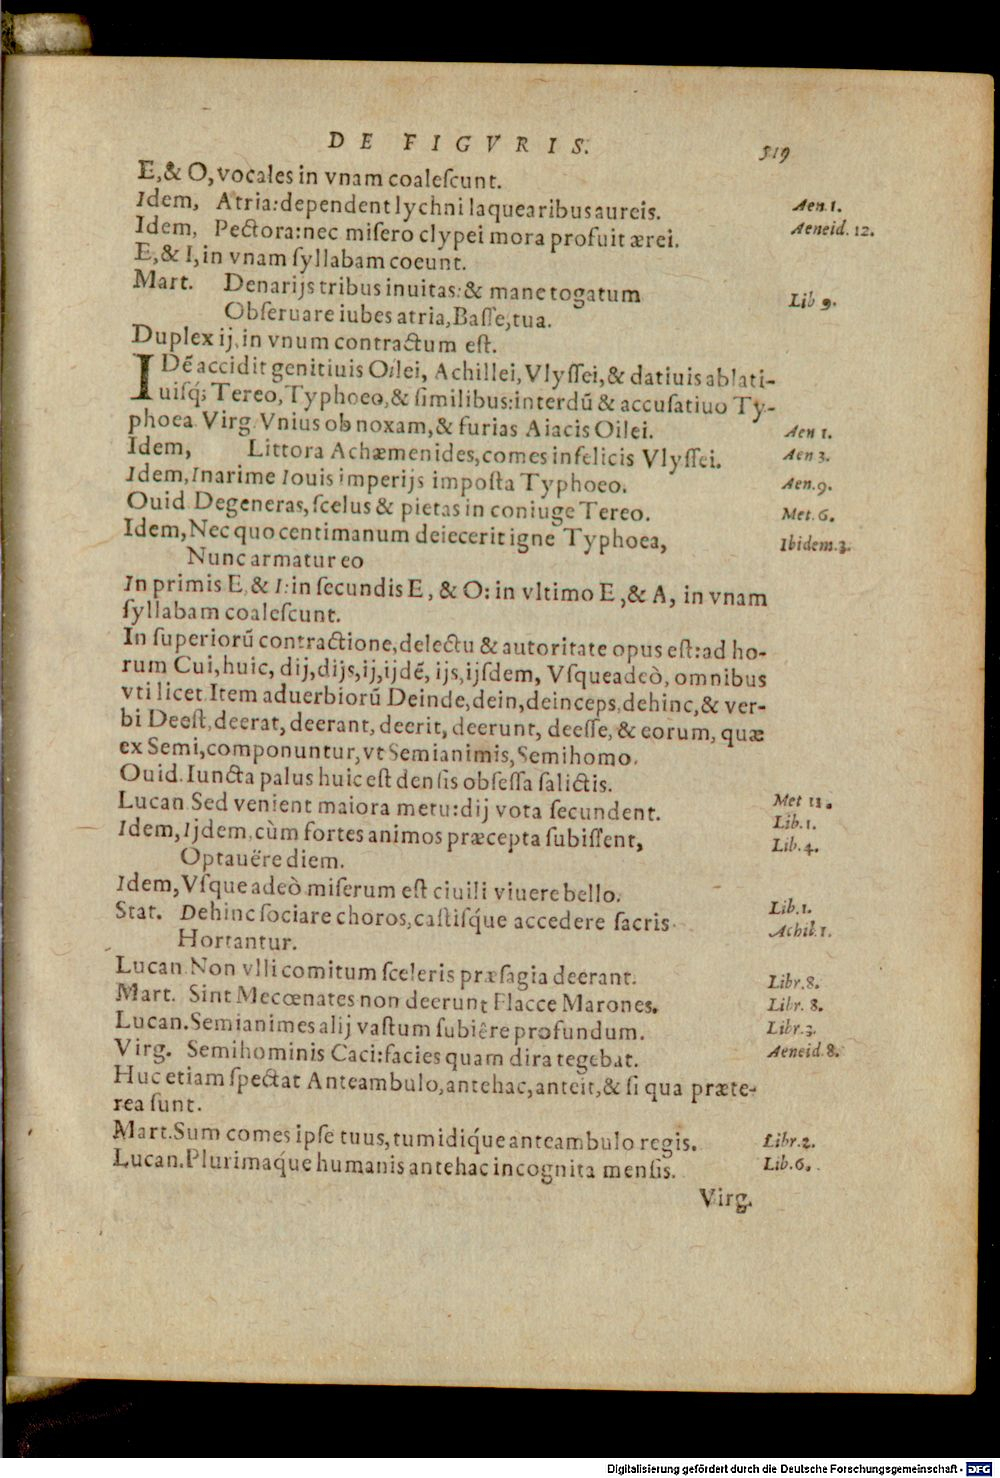 DE FIGVRIS. 519
E,& O, vocales in vnam coaleſcunt.
Idem, Atria: dependent lychni laquearibus aureis. Aen. 1.
Idem, Pectora: nec miſero clypei mora profuit ærei. Aeneid. 12.
E,& I, in vnam ſyllabam coeunt.
Mart. Denarijs tribus inuitas: & mane togatum Lib 9.
Obſeruare iubes atria, Baſſe, tua.
Duplex ij, in vnum contractum eſt.
IDẽ accidit genitiuis Oilei, Achillei, Vlyſſei, & datiuis ablati-
uiſq́; Tereo, Typhoeo, & ſimilibus: interdũ & accuſatiuo Ty-
phoea Virg. Vnius ob noxam, & furias Aiacis Oilei. Aen 1.
Idem, Littora Achæmenides, comes infelicis Vlyſſei. Aen 3.
Idem, Inarime Iouis imperijs impoſta Typhoeo. Aen. 9.
Ouid Degeneras, ſcelus & pietas in coniuge Tereo. Met. 6.
Idem, Nec quo centimanum deiecerit igne Typhoea, Ibidem. 3.
Nunc armatur eo
In primis E, & I: in ſecundis E, & O: in vltimo E, & A, in vnam
ſyllabam coaleſcunt.
In ſuperiorũ contractione, delectu & autoritate opus eſt: ad ho-
rum Cui, huic, dij, dijs, ij, ijdẽ, ijs, ijſdem, Vſqueadeò, omnibus
vti licet Item aduerbiorũ Deinde, dein, deinceps, dehinc, & ver-
bi Deeſt, deerat, deerant, deerit, deerunt, deeſſe, & eorum, quæ
ex Semi, componuntur, vt Semianimis, Semihomo.
Ouid. Iuncta palus huic eſt denſis obſeſſa ſalictis. Met 11.
Lucan Sed venient maiora metu: dij vota ſecundent. Lib. 1.
Idem, Ijdem, cùm fortes animos præcepta ſubiſſent, Lib. 4.
Optauêre diem.
Idem, Vſque adeò miſerum eſt ciuili viuere bello. Lib. 1.
Stat. Dehinc ſociare choros, caſtiſq́ue accedere ſacris Achil. 1.
Hortantur.
Lucan Non vlli comitum ſceleris præſagia deerant. Libr. 8.
Mart. Sint Mecœnates non deerunt Flacce Marones. Libr. 8.
Lucan. Semianimes alij vaſtum ſubiêre profundum. Libr. 3.
Virg. Semihominis Caci: facies quam dira tegebat. Aeneid. 8.
Huc etiam ſpectat Anteambulo, antehac, anteit, & ſi qua præte-
rea ſunt.
Mart. Sum comes ipſe tuus, tumidiq́ue anteambulo regis. Libr. 2.
Lucan. Plurimaq́ue humanis antehac incognita menſis. Lib. 6.
Virg.
Digitalisierung gefördert durch die Deutsche Forschungsgemeinschaft - DFG